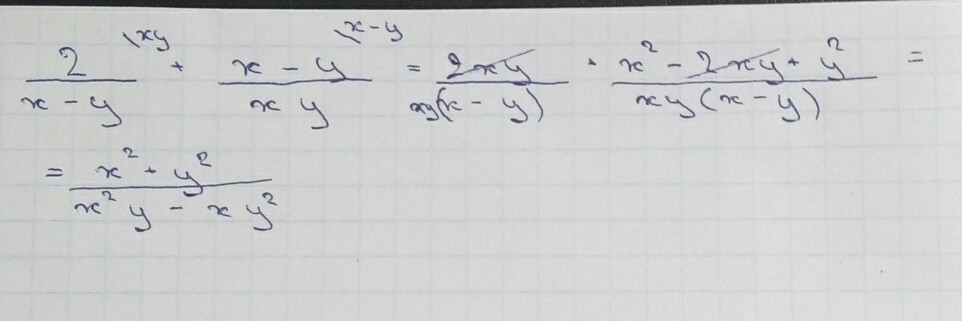 2/(x - y) \xy + (x - y)/(xy) \x-y = 2xy/(xy(x - y)) + (x² - 2xy + y²)/(xy(x - y)) =
= (x² + y²)/(x²y - xy²)